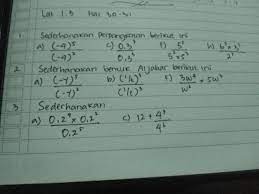 Lat 1.3 Hal 30-31
1 Sederhanakan Perpangkatan berikut ini
a) (-4)⁵ / (-4)² c) 0,3⁷ / 0,3³ f) 5⁵ / 5² × 5² h)
2 Sederhanakan bentuk Aljabar berikut ini
a) (-y)⁵ / (-y)² b) (1/t) / (1/t)³ f) 3w⁴ / w² × 5w³
3 Sederhanakan
a) 0,2⁴ × 0,2² / 0,2⁵ c) 12 + 4⁶ / 4³